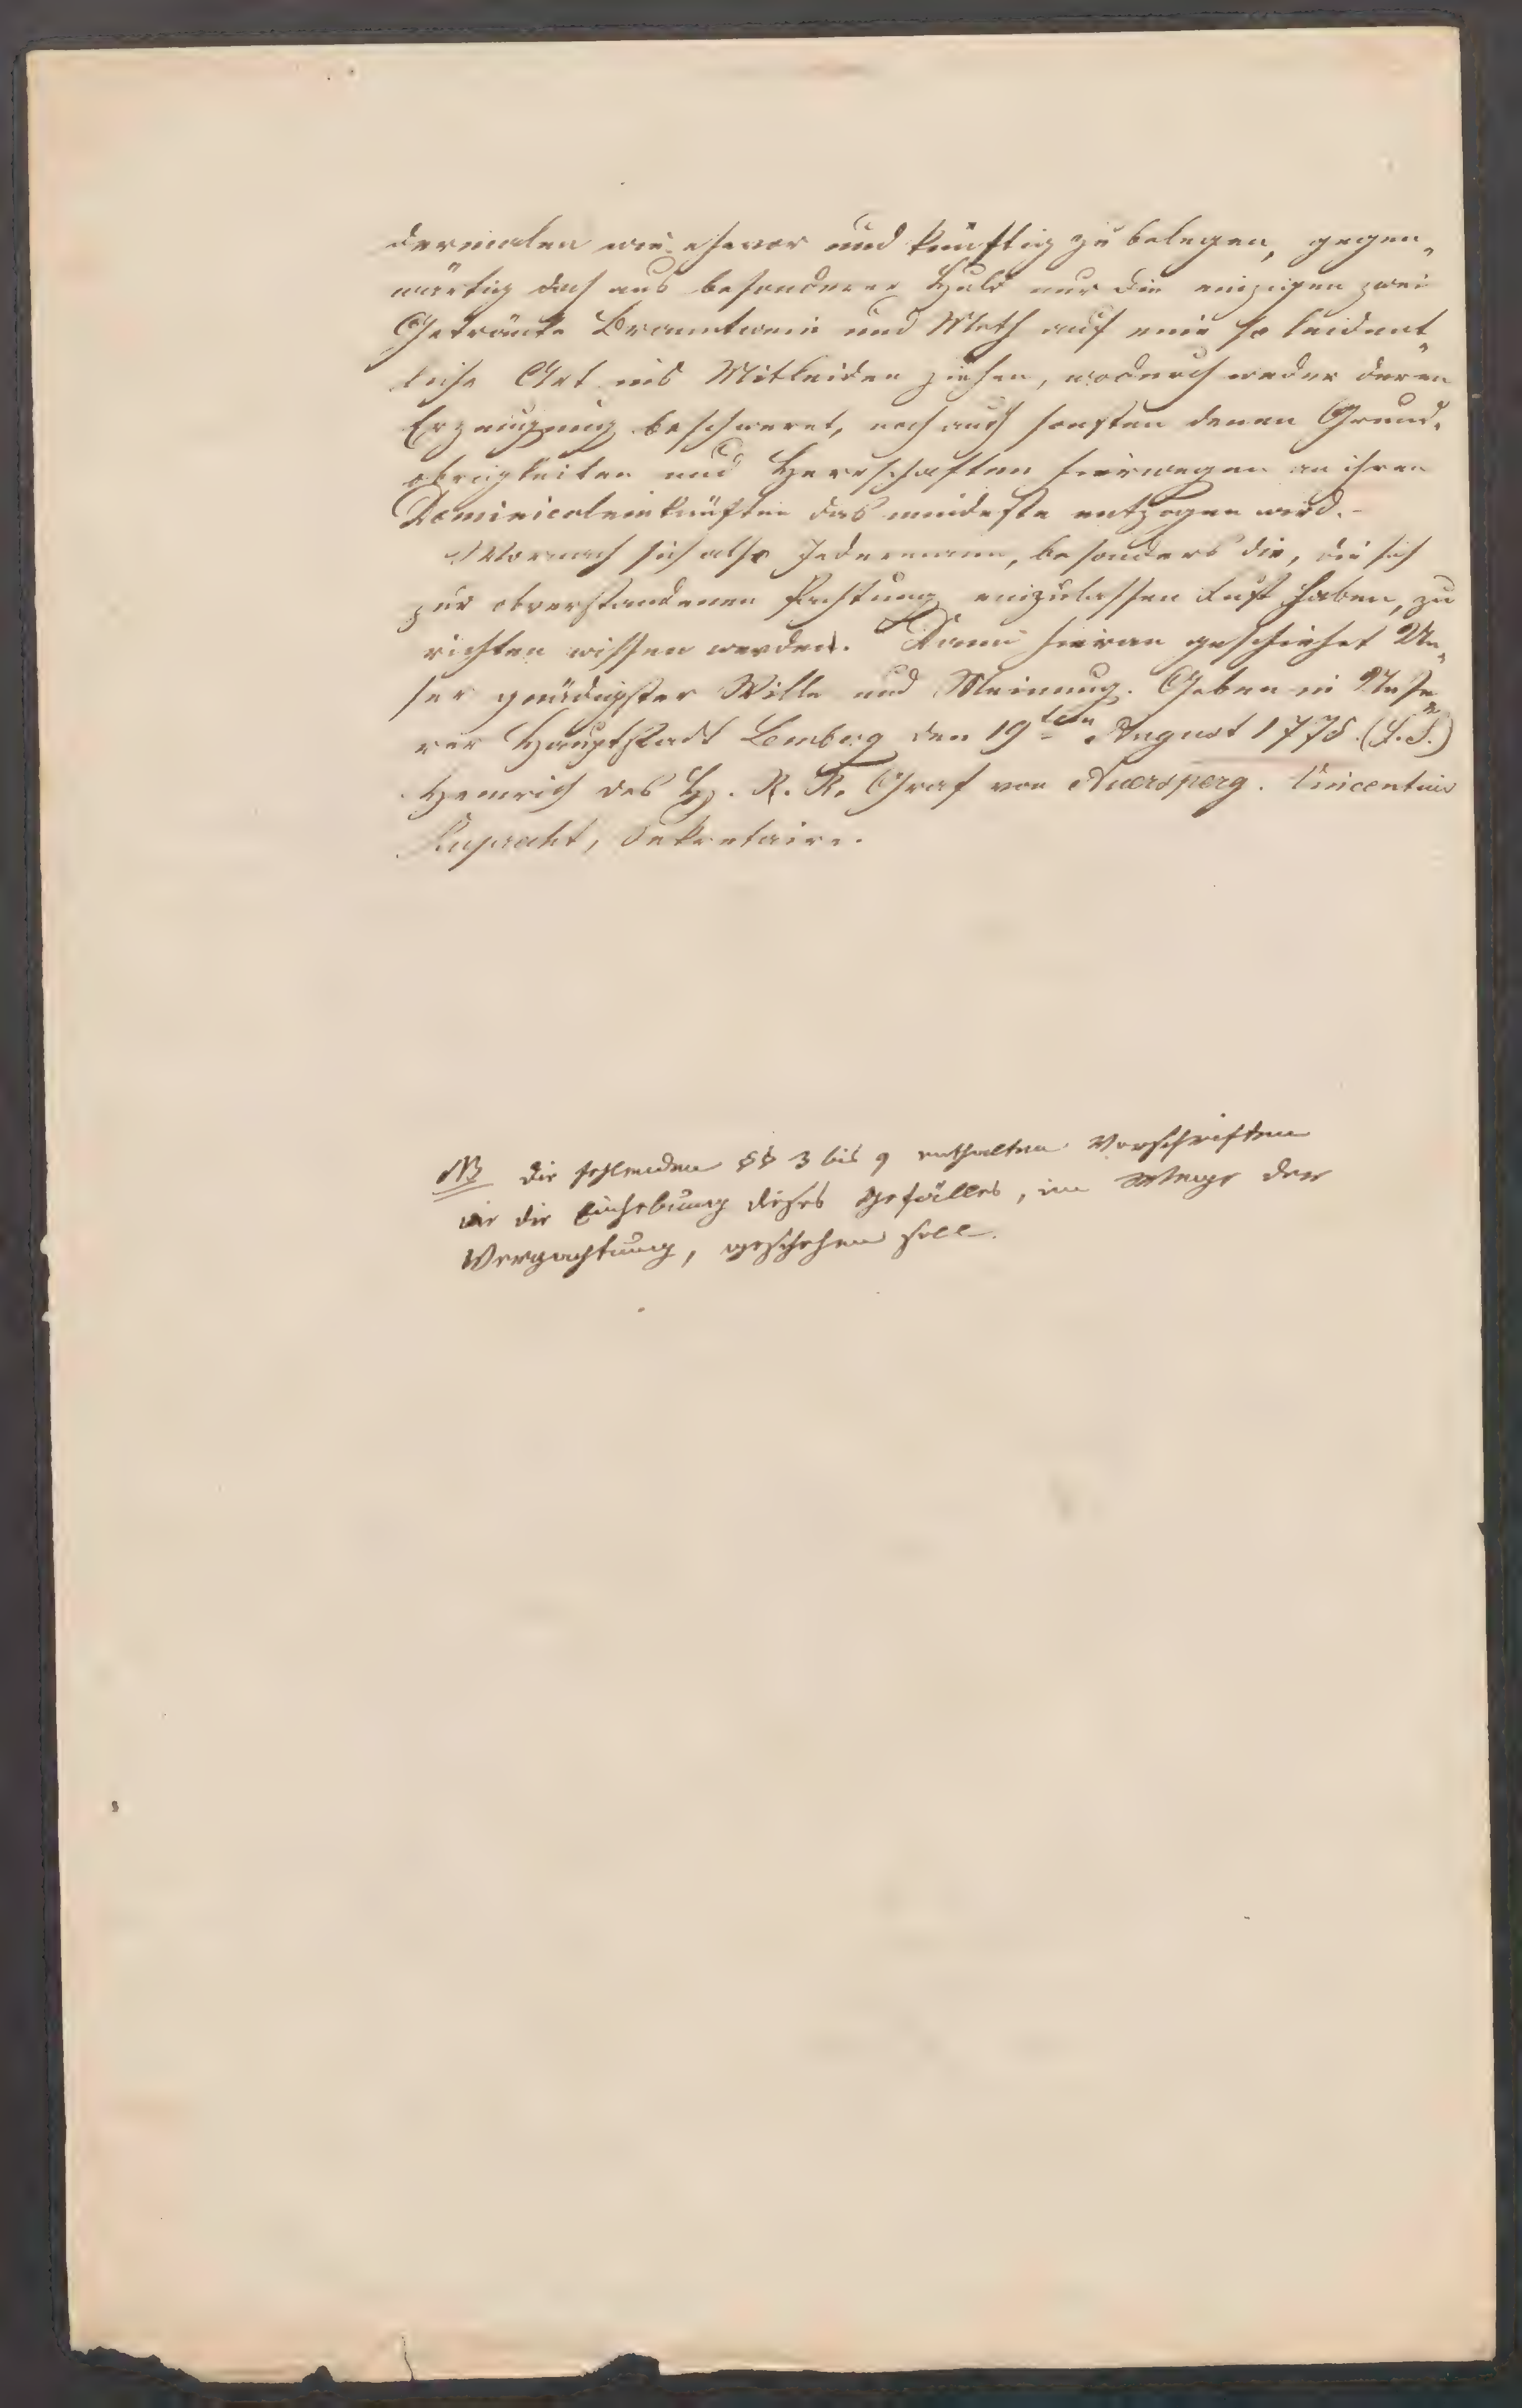 dermalen wie ehevor und künftig zu belegen, gegen„
wärtig doch aus besonderer Huld nur die einzigen zwei
Getränke Branntwein und Meth auf eine so leident„
liche Art ins Mitleiden ziehen, wodurch weder deren
Erzeugung beschweret, noch auch sonsten denen Grund„
obrigkeiten und Herrschaften hierwegen an ihren
Dominicaleinkünften das mindeste entzogen wird. –
Wornach sich also Jedermann, besonders die, die sich
zur obverstandenen Pachtung einzulassen Lust haben, zu
richten wissen werden. Dann hieran geschiehet Un„
ser gnädigster Wille und Meinung. Geben in Unse„
rer Hauptstadt Lemberg den 19ten August 1775. (L.S.)
Heinrich des H. R. R. Graf von Auersperg. Vincentius
Ruprecht, Sekretaire.
NB die fehlenden §§ 3 bis 9 enthalten Vorschriften
wie die Einhebung dieses Gefälles, im Wege der
Verpachtung, geschehen soll.